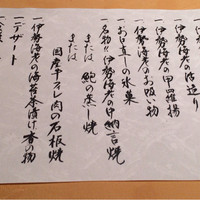 一伊勢海老の活造り
一伊勢海老の甲羅揚
一伊勢海老のお吸い物
一お口直しの氷菓
名物!!伊勢海老の中納言焼
または 鮑の蒸し焼
または
国産牛ヒレ肉の石板焼
一伊勢海老の海苔茶漬け香の物
一デザート